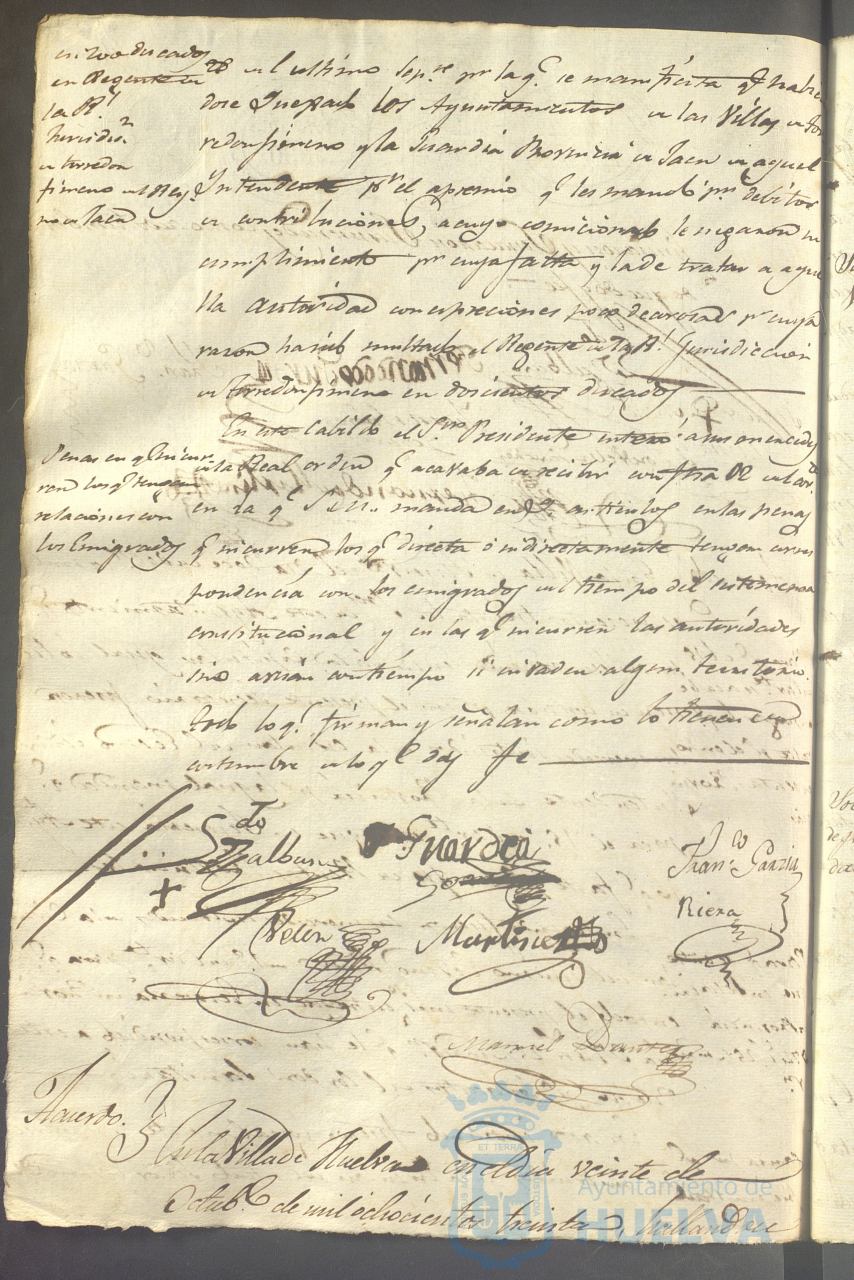 en 200 ducados
en Regente de
la Rl.
Jurisdicn.
de torredon
fimeno del Rey
no de Jaen
28 del ultimo Sepre. pr. la q. se manifiesta q. habien
dose Quejado los Ayuntamientos de las Villas de Tor
redonfimeno y la Guardia Provincia de Jaen de aquel
Yntendente pr. el apremio q. les mandó pr. debitos
de contribuciones, a cuyo comicionado le negaron su
cumplimiento pr. cuya falta y la de tratar a aque
lla autoridad con espreciones poco decorosas pr. cuya
razon ha sido multado el Regente de la Rl. Jurisdiccion
de torredonfimeno en doscientos ducados
Penas en q. incur
ren los q. tengan
relaciones con
los Emigrados
En este Cabildo el Sor. Presidente enteró a sus
de la Real orden q. acavaba de recibir con fha 12 del cor.
en la q. S. M. manda en artículos en las penas
q. incurren los q. directa ó indirectamente tengan corres
pondencia con los emigrados del tiempo del sistema
constitucional y en las q. incurren las autoridades
sino avisan con tiempo si invaden algun territorio.
todo lo q. firman y señalan como lo tienen de
costumbre de lo q. doy fe
Guardia
Franco. Garzia
Riera
Velez
Martinez
Manuel
Acuerdo.
En la Villa de Huelva en el dia veinte de
Octube. de mil ochocientos treinta, hallandose
ET TERRA
Ayuntamiento de
HUELVA